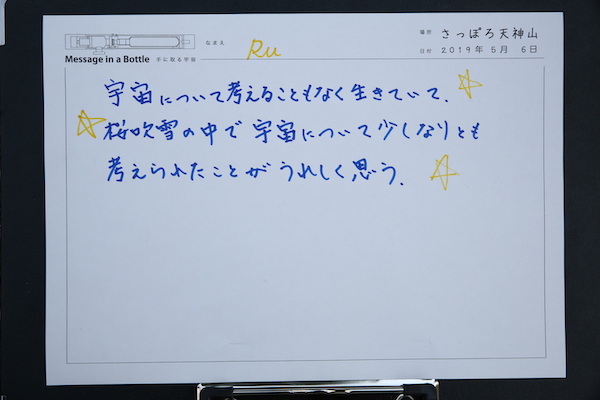 Message in a Bottle 手に取る宇宙
なまえ Ru
場所 さっぽろ天神山
日付 2019年5月6日
宇宙について考えることもなく生きていて、
桜吹雪の中で宇宙について少しなりとも
考えられたことがうれしく思う。